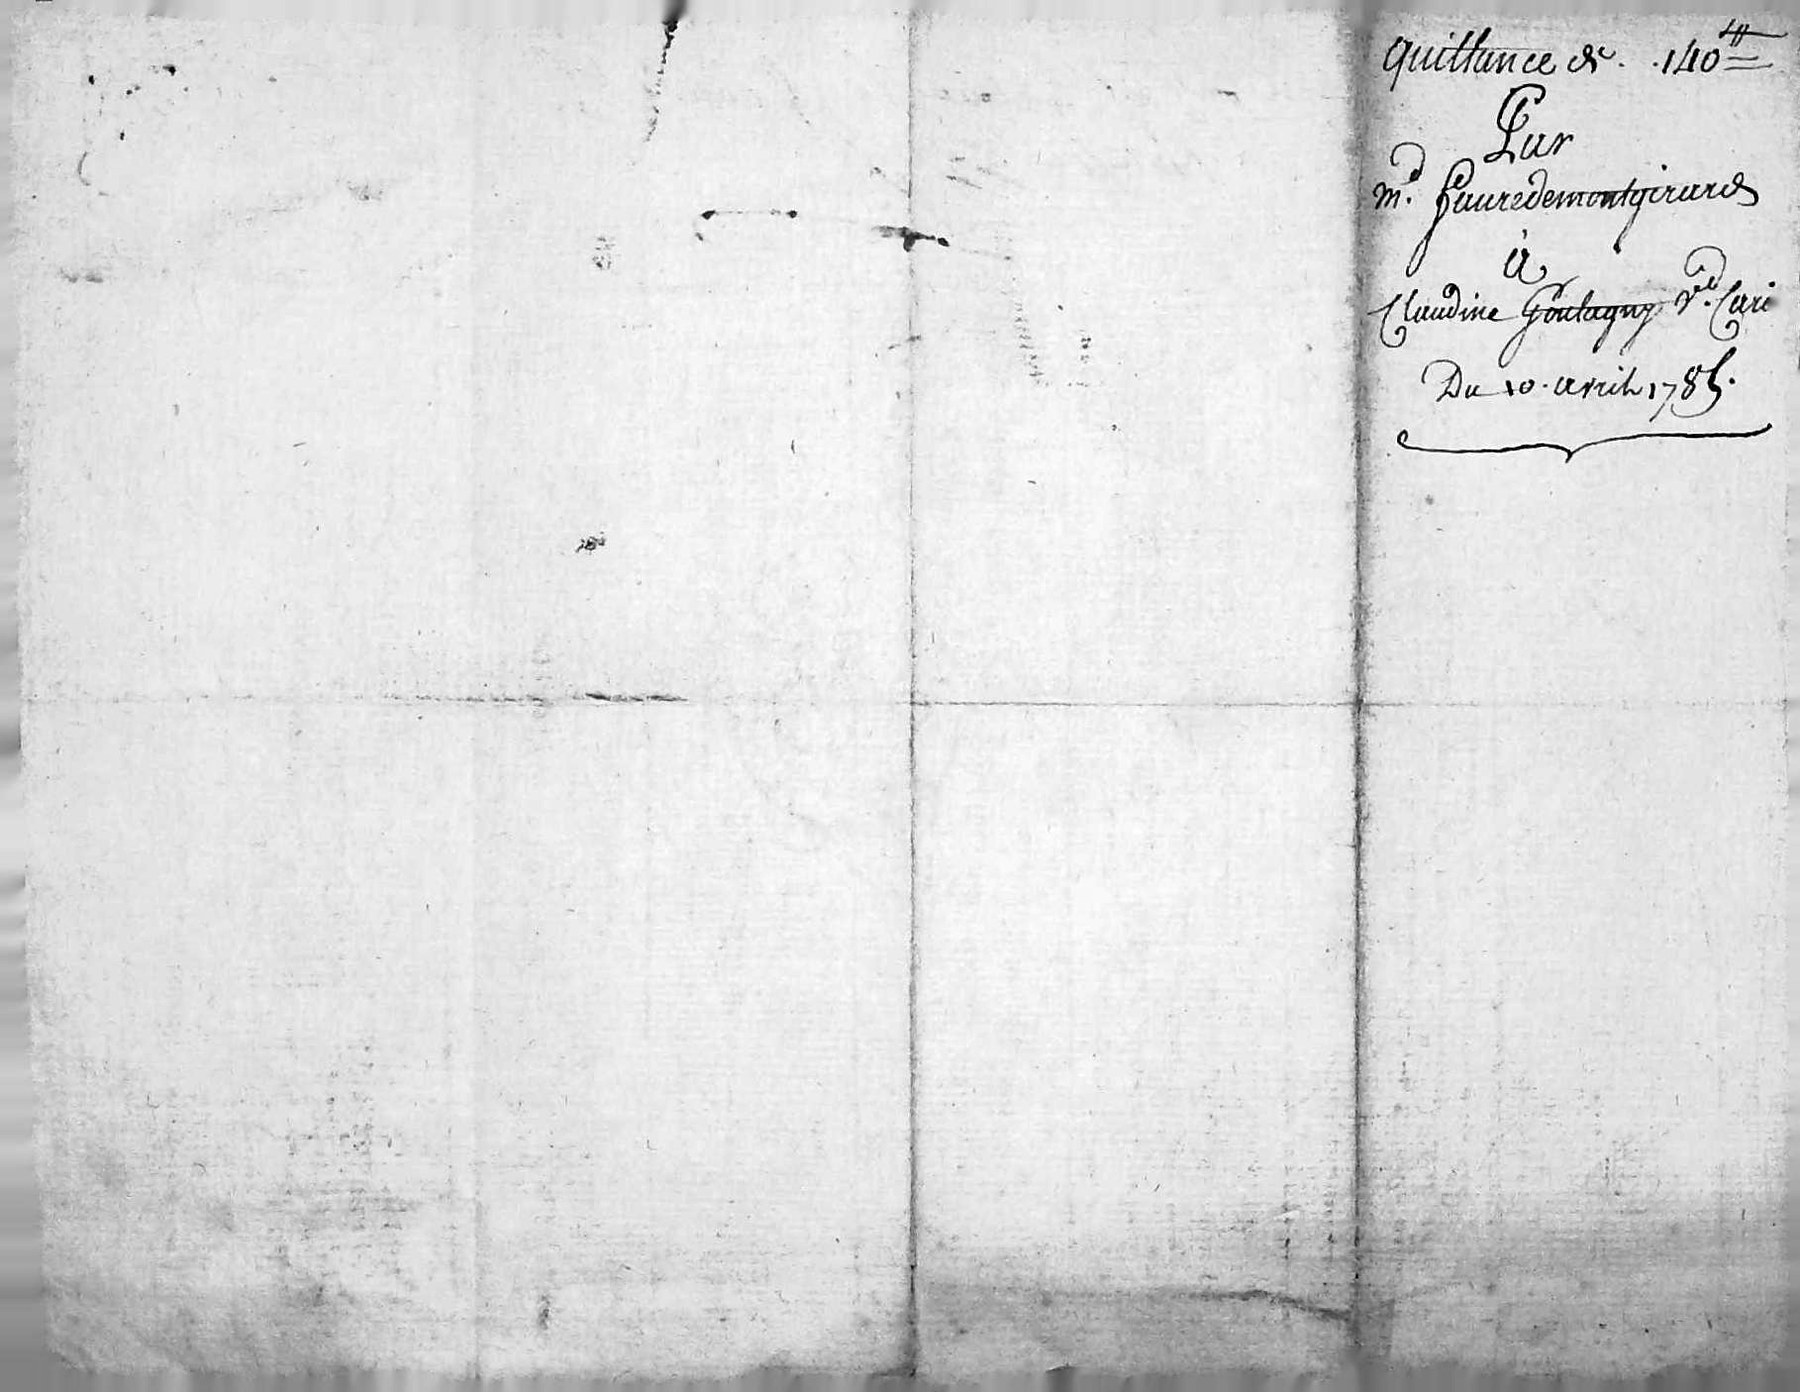 quittance de . . 140 ₶
Par
m.d fauredemontgirard
à
Claudine Goutagny v.e Cari
Du 10. avril 1785.